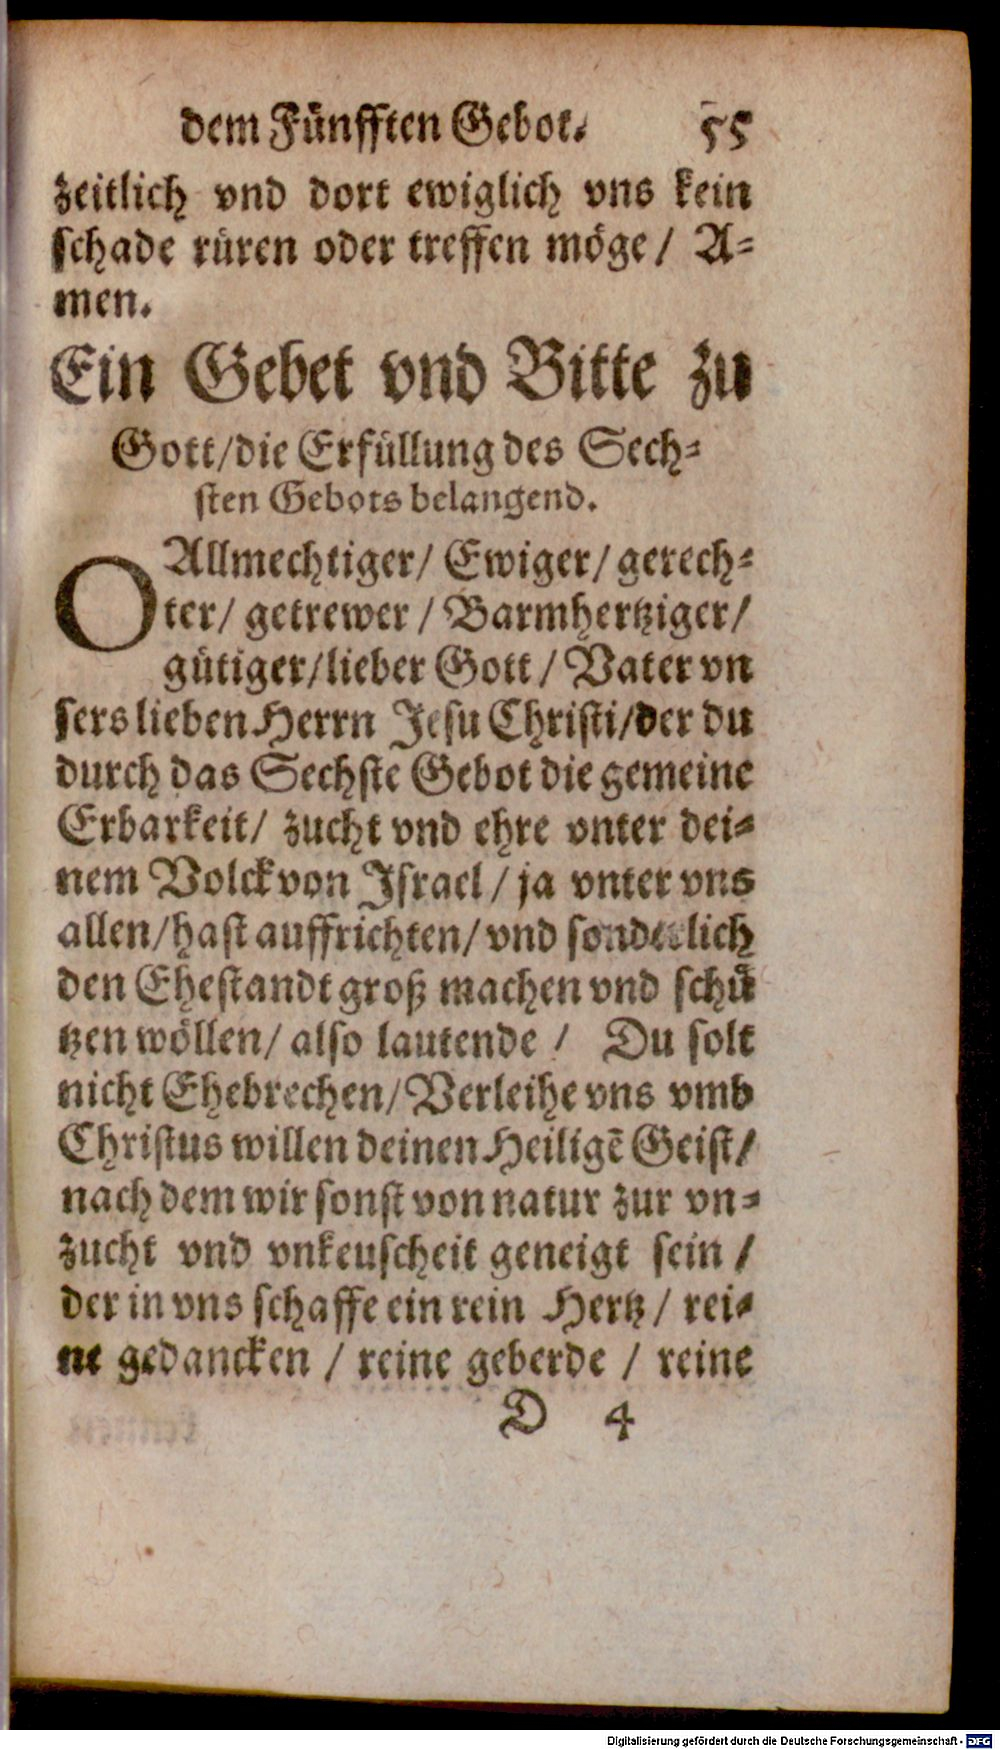 dem Fünfften Gebot. 55
zeitlich vnd dort ewiglich vns kein
schade rüren oder treffen möge / A-
men.
Ein Gebet vnd Bitte zu
Gott/die Erfüllung des Sech-
sten Gebots belangend.
O Allmechtiger/ Ewiger/ gerech-
ter/ getrewer / Barmhertziger/
gütiger/lieber Gott / Vater vn
sers lieben Herrn Jesu Christi/der du
durch das Sechste Gebot die gemeine
Erbarkeit/ zucht vnd ehre vnter dei-
nem Volck von Israel / ja vnter vns
allen/hast auffrichten/ vnd sonderlich
den Ehestandt groß machen vnd schü
tzen wöllen/ also lautende / Du solt
nicht Ehebrechen/ Verleihe vns vmb
Christus willen deinen Heiligē Geist/
nach dem wir sonst von natur zur vn-
zucht vnd vnkeuscheit geneigt sein /
der in vns schaffe ein rein Hertz / rei-
ne gedancken / reine geberde / reine
D 4
Digitalisierung gefördert durch die Deutsche Forschungsgemeinschaft - DFG